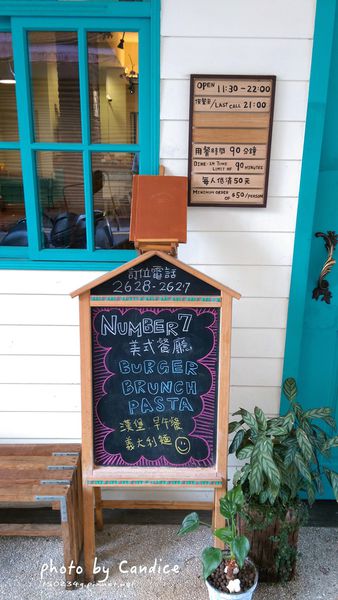 OPEN 11:30-22:00
LAST CALL 21:00
用餐時間 90分鐘
DINE-IN TIME LIMIT OF 90 MINUTES
每人低消 50元
MINIMUM ORDER OF $50/PERSON
訂位電話
2628-2627
NUMBER 7
美式餐廳
BURGER
BRUNCH
PASTA
漢堡 早午餐
義大利麵
photo by Candice